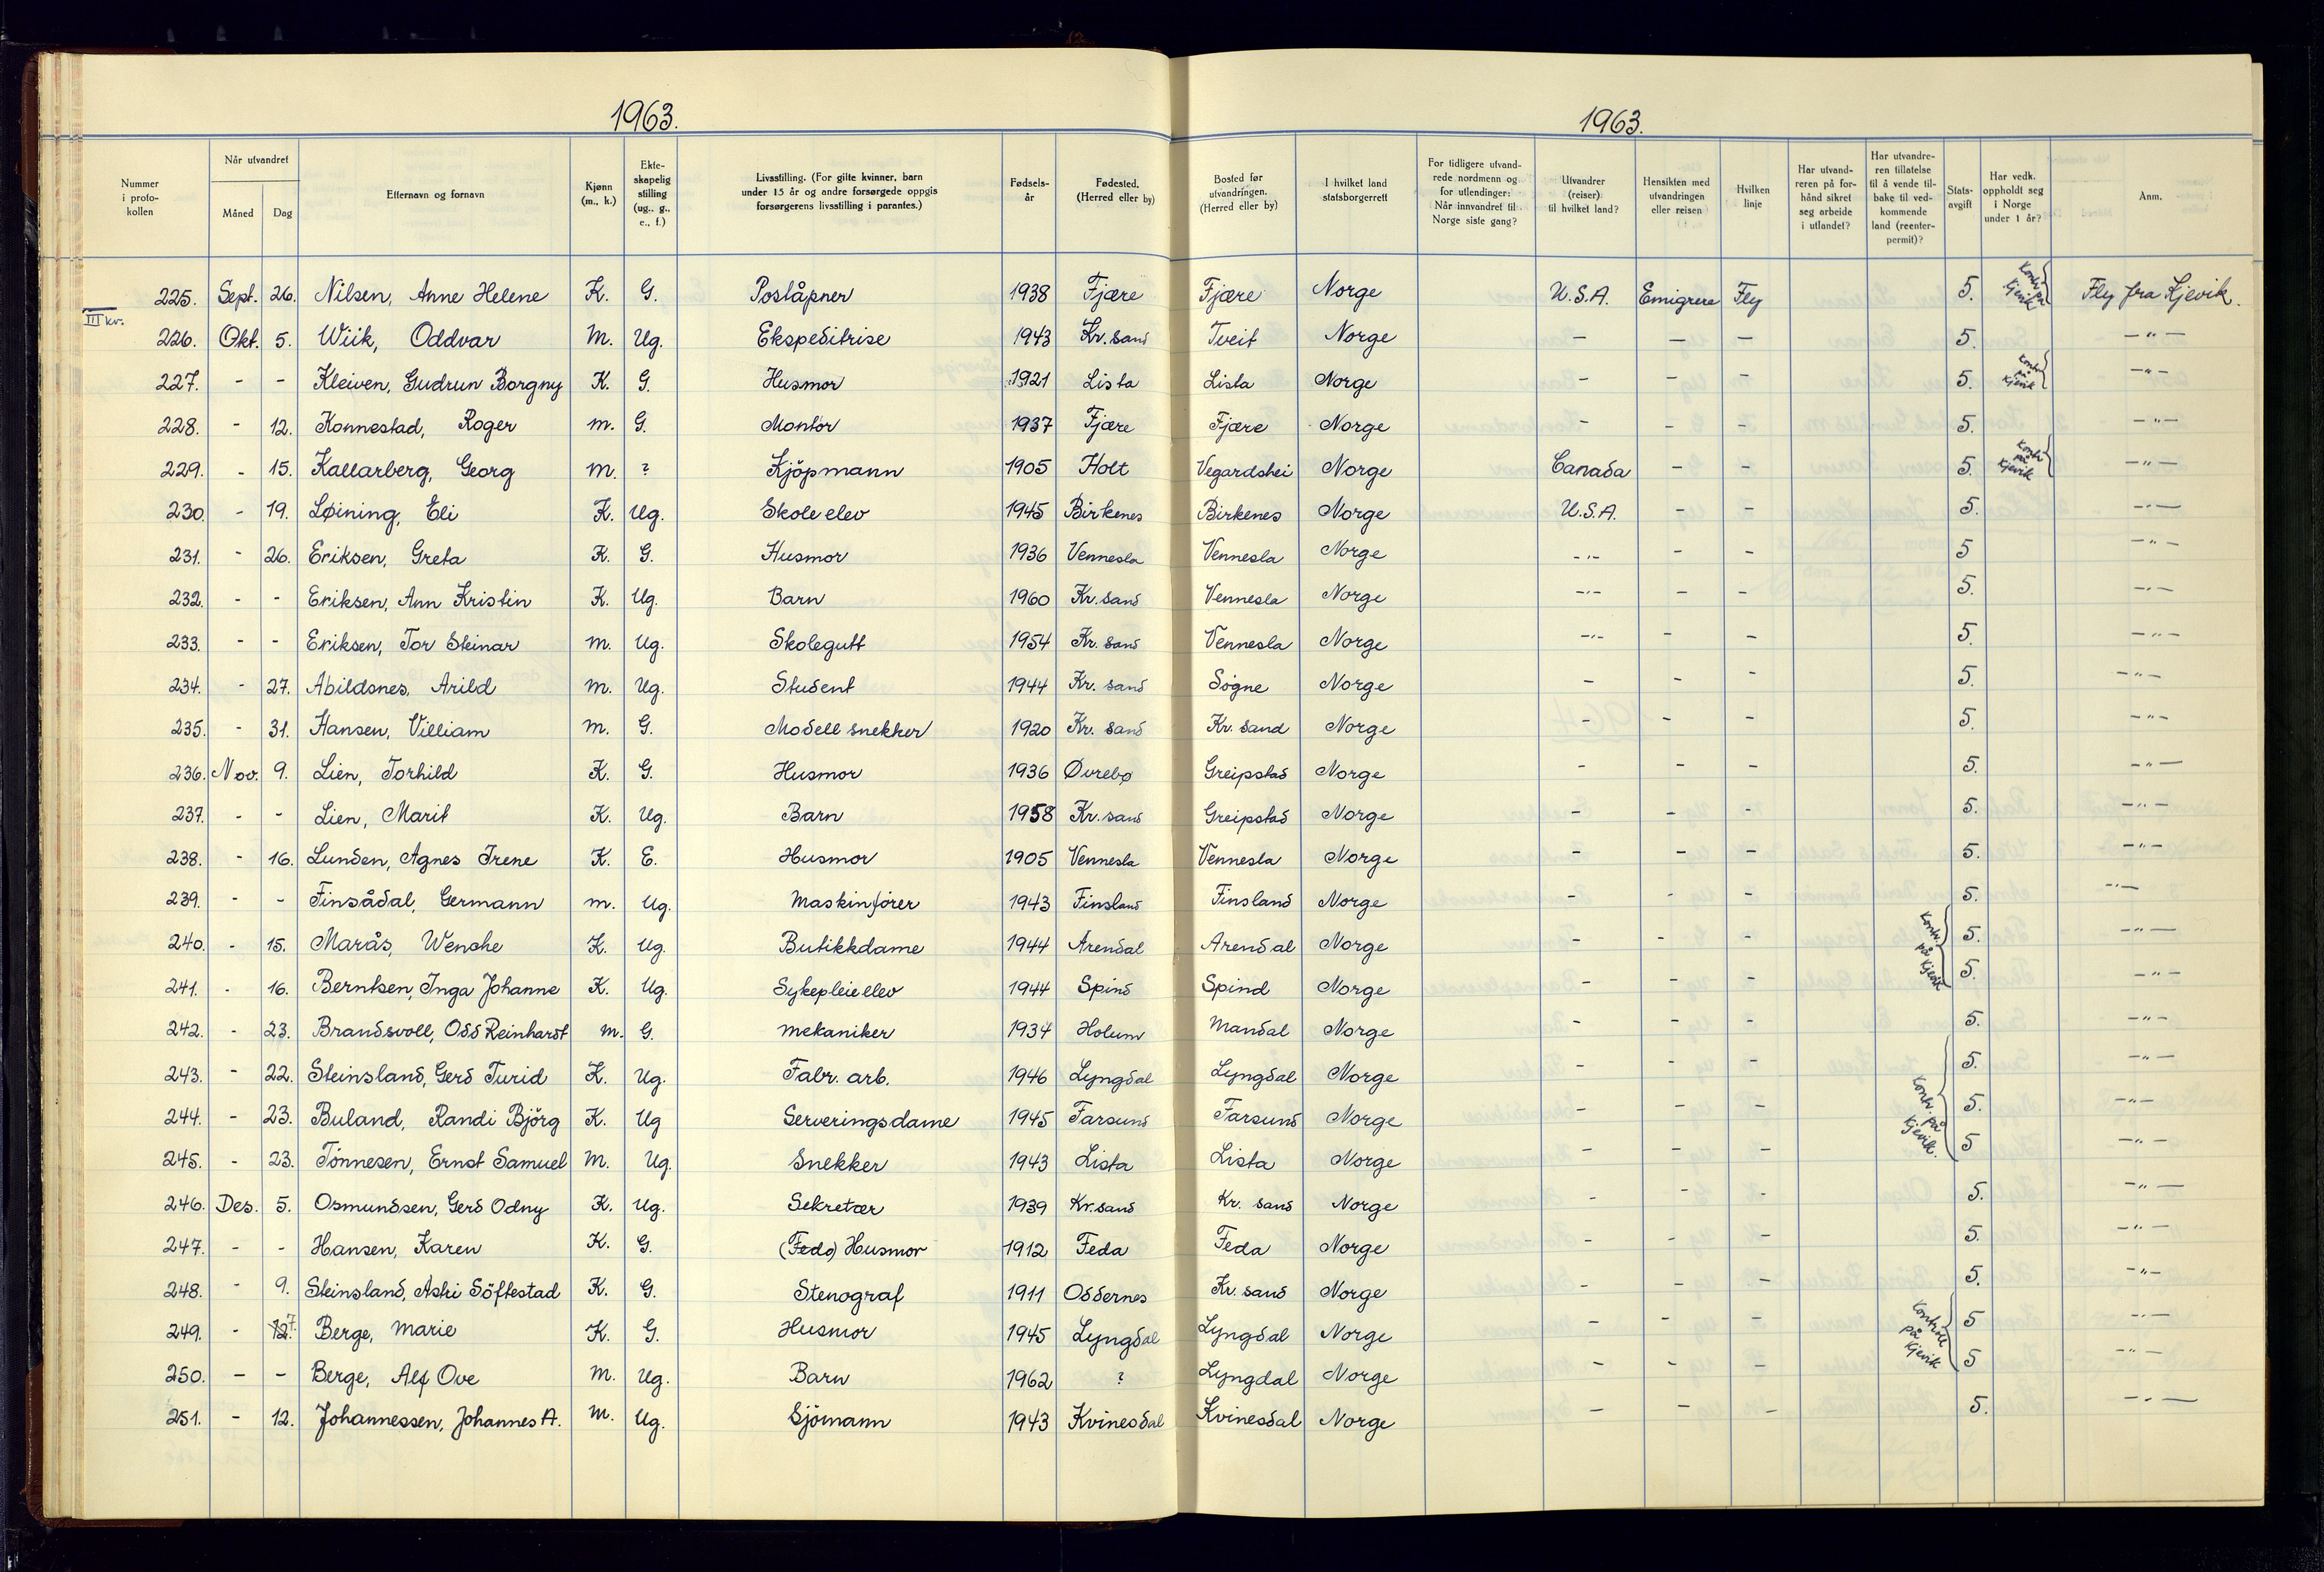 1963. 1963.
Nummer i proto-kollen | Når utvandret Måned Dag | Etternavn og fornavn | Kjønn (m., k.) | Ekte-skapelig stilling (ug., g., e., f.) | Livsstilling. (For gifte kvinner, barn under 15 år og andre forsørgede oppgis forsørgerens livsstilling i parantes.) | Fødsels-år | Fødested. (Herred eller by) | Bosted før utvandringen. (Herred eller by) | I hvilket land statsborgerrett | For tidligere utvand-rede nordmenn og for utlendinger: Når innvandret til Norge siste gang? | Utvandrer (reiser) til hvilket land? | Hensikten med utvandringen eller reisen | Hvilken linje | Har utvand-reren på for-hånd sikret seg arbeide i utlandet? | Har utvandre-ren tillatelse til å vende til-bake til ved-kommende land (reenter-permit)? | Stats-avgift | Har vedk. oppholdt seg i Norge under 1 år? | Anm.
225. Sept. 26. Nilsen, Anne Helene K. G. Poståpner 1938 Fjære Fjære Norge U.S.A. Emigrere Fly 5. Kontr. på Kjevik Fly fra Kjevik.
III kv.
226. Okt. 5. Wiik, Oddvar M. Ug. Ekspeditrise 1943 Kr. sand Tveit Norge — — — 5. —"—
227. - - Kleiven, Gudrun Borgny K. G. Husmor 1921 Lista Lista Norge - - - 5. Kontr. på Kjevik —"—
228. - 12. Konnestad, Roger m. G. Montör 1937 Fjære Fjære Norge - - - 5. —"—
229. - 15. Kallarberg, Georg m. ? Kjöpmann 1905 Holt Vegardshei Norge Canada - - 5. Kontr på Kjevik —"—
230. - 19. Løining, Eli K. Ug. Skole elev 1945 Birkenes Birkenes Norge U.S.A. - - 5. —"—
231. - 26. Eriksen, Greta K. G. Husmor 1936 Vennesla Vennesla Norge -"- - - 5 —"—
232. - - Eriksen, Ann Kristin K. Ug. Barn 1960 Kr. sand Vennesla Norge -"- - - 5. —"—
233. - - Eriksen, Tor Steinar m. Ug. Skolegutt 1954 Kr. sand Vennesla Norge -"- - - 5. —"—
234. - 27. Abildsnes, Arild m. Ug. Student 1944 Kr. sand Sögne Norge - - - 5. —"—
235. - 31. Hansen, Villiam m. G. Modell snekker 1920 Kr. sand Kr. sand Norge - - - 5. —"—
236. Nov. 9. Lien, Torhild K. G. Husmor 1936 Øvrebø Greipstad Norge - - - 5. —"—
237. - - Lien, Marit K. Ug. Barn 1958 Kr. sand Greipstad Norge - - - 5. —"—
238. - 16. Lunden, Agnes Irene K. E. Husmor 1905 Vennesla Vennesla Norge - - - 5. —"—
239. - - Finsådal, Germann m. Ug. Maskinförer 1943 Finsland Finsland Norge - - - 5. —"—
240. - 15. Marås, Wenche K. Ug. Butikkdame 1944 Arendal Arendal Norge - - - Kontr. på Kjevik 5. —"—
241. - 16. Berntsen, Inga Johanne K. Ug. Sykepleieelev 1944 Spind Spind Norge - - - 5. —"—
242. - 23. Brandsvoll, Odd Reinhardt m. G. mekaniker 1934 Holum Mandal Norge - - - 5. —"—
243. - 22. Steinsland, Gerd Turid K. Ug. Fabr. arb. 1946 Lyngdal Lyngdal Norge - - - 5. —"—
244. - 23. Buland, Randi Björg K. Ug Serveringsdame 1945 Farsund Farsund Norge - - - Kontr. på Kjevik. 5. —"—
245. - 23. Tönnesen, Ernst Samuel M. Ug. Snekker 1943 Lista Lista Norge - - - 5 —"—
246. Des. 5. Osmundsen, Gerd Odny K. Ug. Sekretær 1939 Kr. sand Kr. sand Norge - - - 5. —"—
247. - - Hansen, Karen K. G. (Feda) Husmor 1912 Feda Feda Norge - - - 5. —"—
248. - 9. Steinsland, Astri Söftestad K. G. Stenograf 1911 Oddernes Kr. sand Norge - - - 5. —"—
249. - 12. 7. Berge, Marie K. G. Husmor 1945 Lyngdal Lyngdal Norge - - - Kontroll på Kjevik 5 —"—
250. - - Berge, Alf Ove M. Ug. Barn 1962 ? Lyngdal Norge - - - 5 —"—
251. - 12. Johannessen, Johannes A. M. Ug. Sjömann 1943 Kvinesdal Kvinesdal Norge - - - 5. —"—